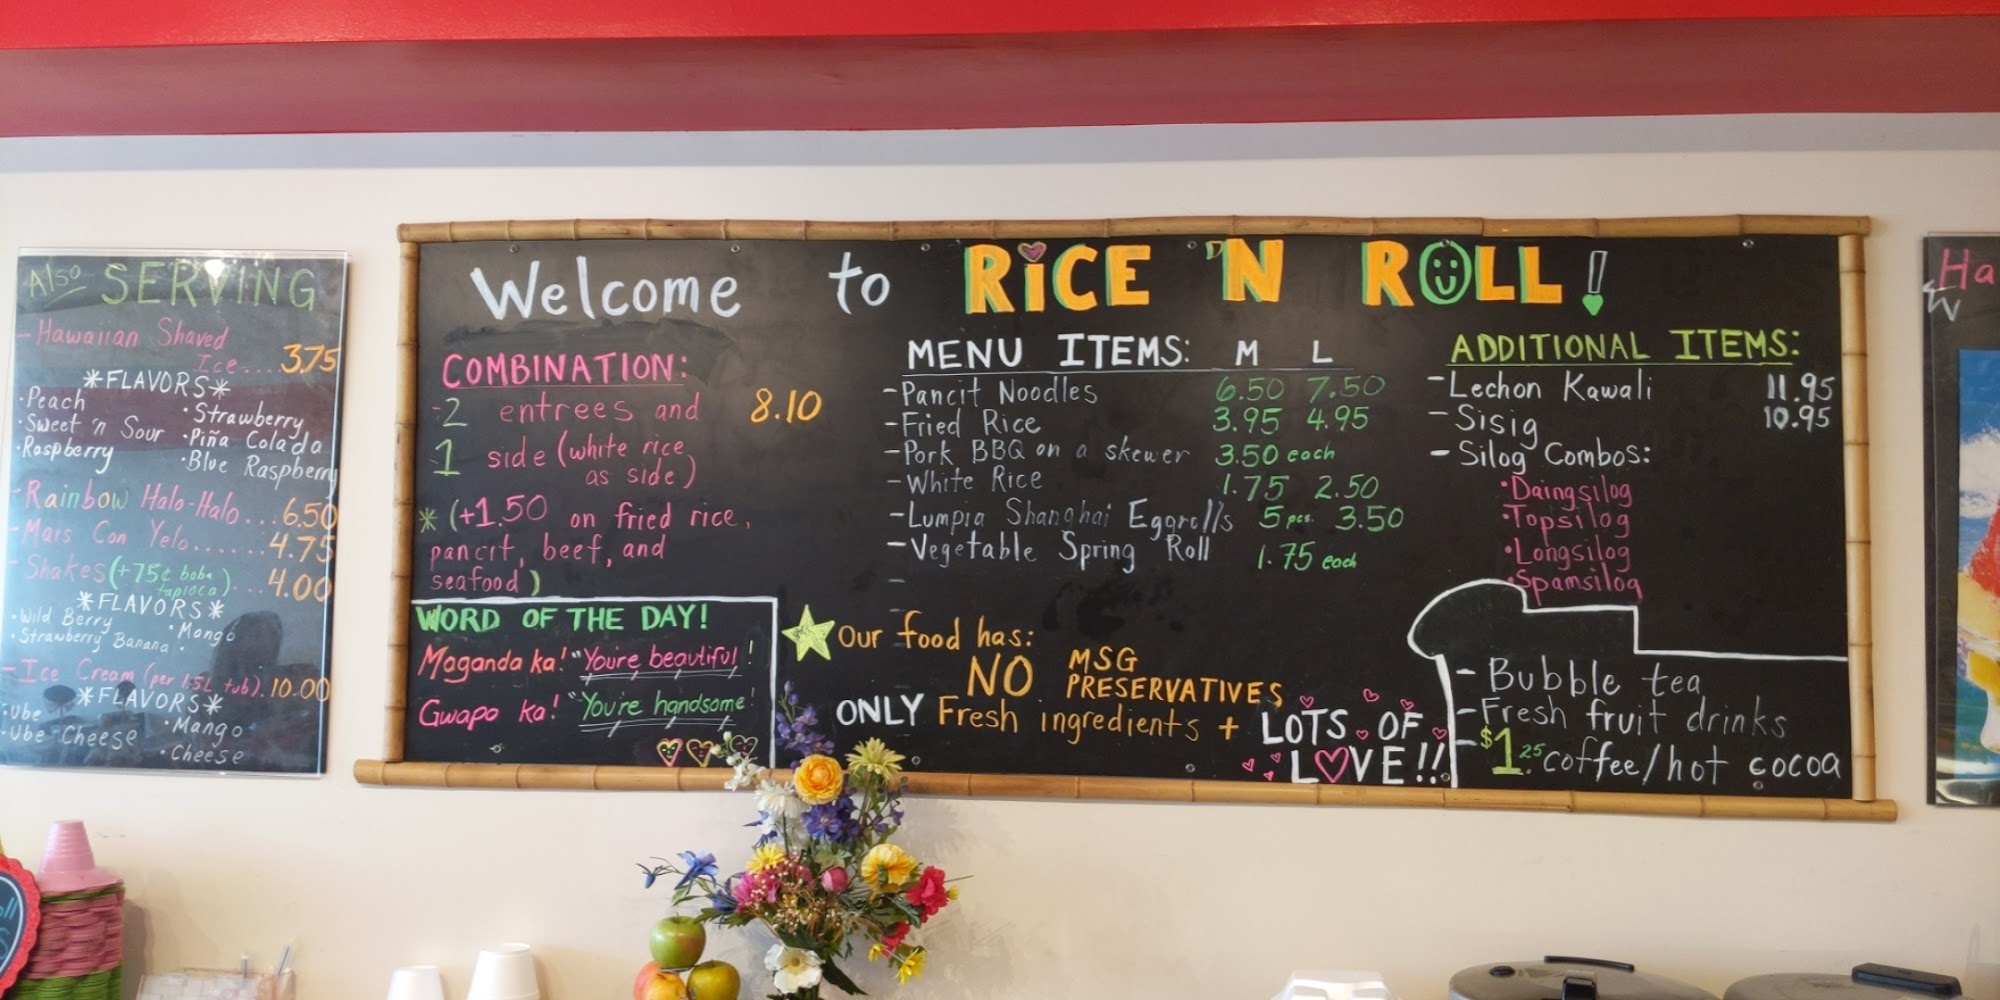 Also SERVING
- Hawaiian Shaved
Ice... 3.75
*FLAVORS*
·Peach
·Strawberry
·Sweet 'n Sour
·Piña Colada
·Raspberry
·Blue Raspberry
- Rainbow Halo-Halo... 6.50
- Mais Con Yelo....... 4.75
- Shakes (+75¢ boba tapioca)... 4.00
*FLAVORS*
·Wild Berry
·Mango
·Strawberry Banana ·
- Ice Cream (per 1.5L tub). 10.00
*FLAVORS*
·Ube
·Mango
·Ube Cheese
·Cheese
Welcome to RiCE 'N ROLL!
COMBINATION:
-2 entrees and 8.10
1 side (white rice
as side)
* (+1.50 on fried rice,
pancit, beef, and
seafood)
WORD OF THE DAY!
Maganda ka! "You're beautiful!
Gwapo ka! "You're handsome!
MENU ITEMS: M L
-Pancit Noodles 6.50 7.50
-Fried Rice 3.95 4.95
-Pork BBQ on a skewer 3.50 each
-White Rice 1.75 2.50
-Lumpia Shanghai Eggrolls 5 pcs. 3.50
-Vegetable Spring Roll 1.75 each
-
Our food has:
NO MSG
PRESERVATIVES
ONLY Fresh ingredients + LOTS OF
LOVE!!
ADDITIONAL ITEMS:
-Lechon Kawali 11.95
-Sisig 10.95
-Silog Combos:
·Daingsilog
·Topsilog
·Longsilog
·Spamsilog
- Bubble tea
-Fresh fruit drinks
-$1.25 coffee/hot cocoa
Ha